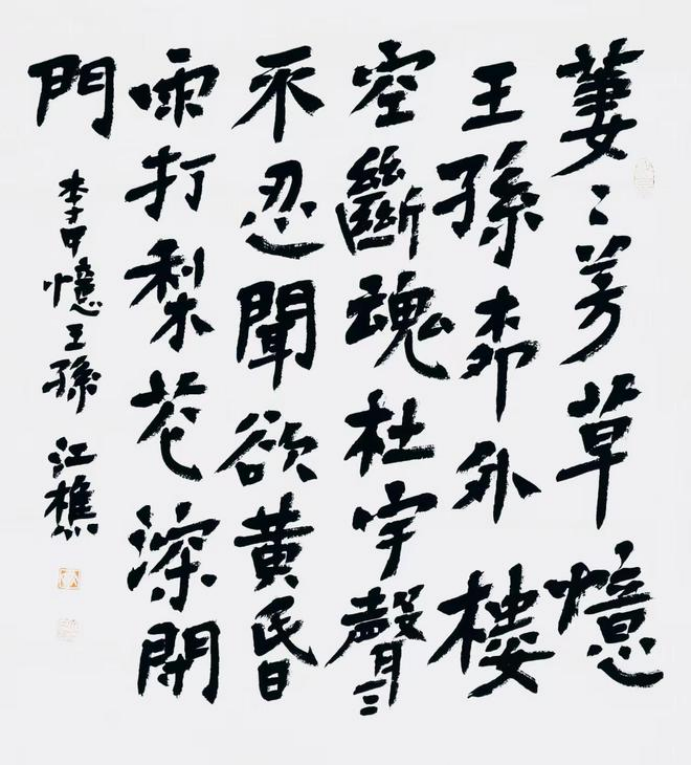 萋〻芳草憶
王孫柳外樓
空斷魂杜宇聲〻
不忍聞欲黃昏
雨打梨花深閉
門
李甲憶王孫 江樵